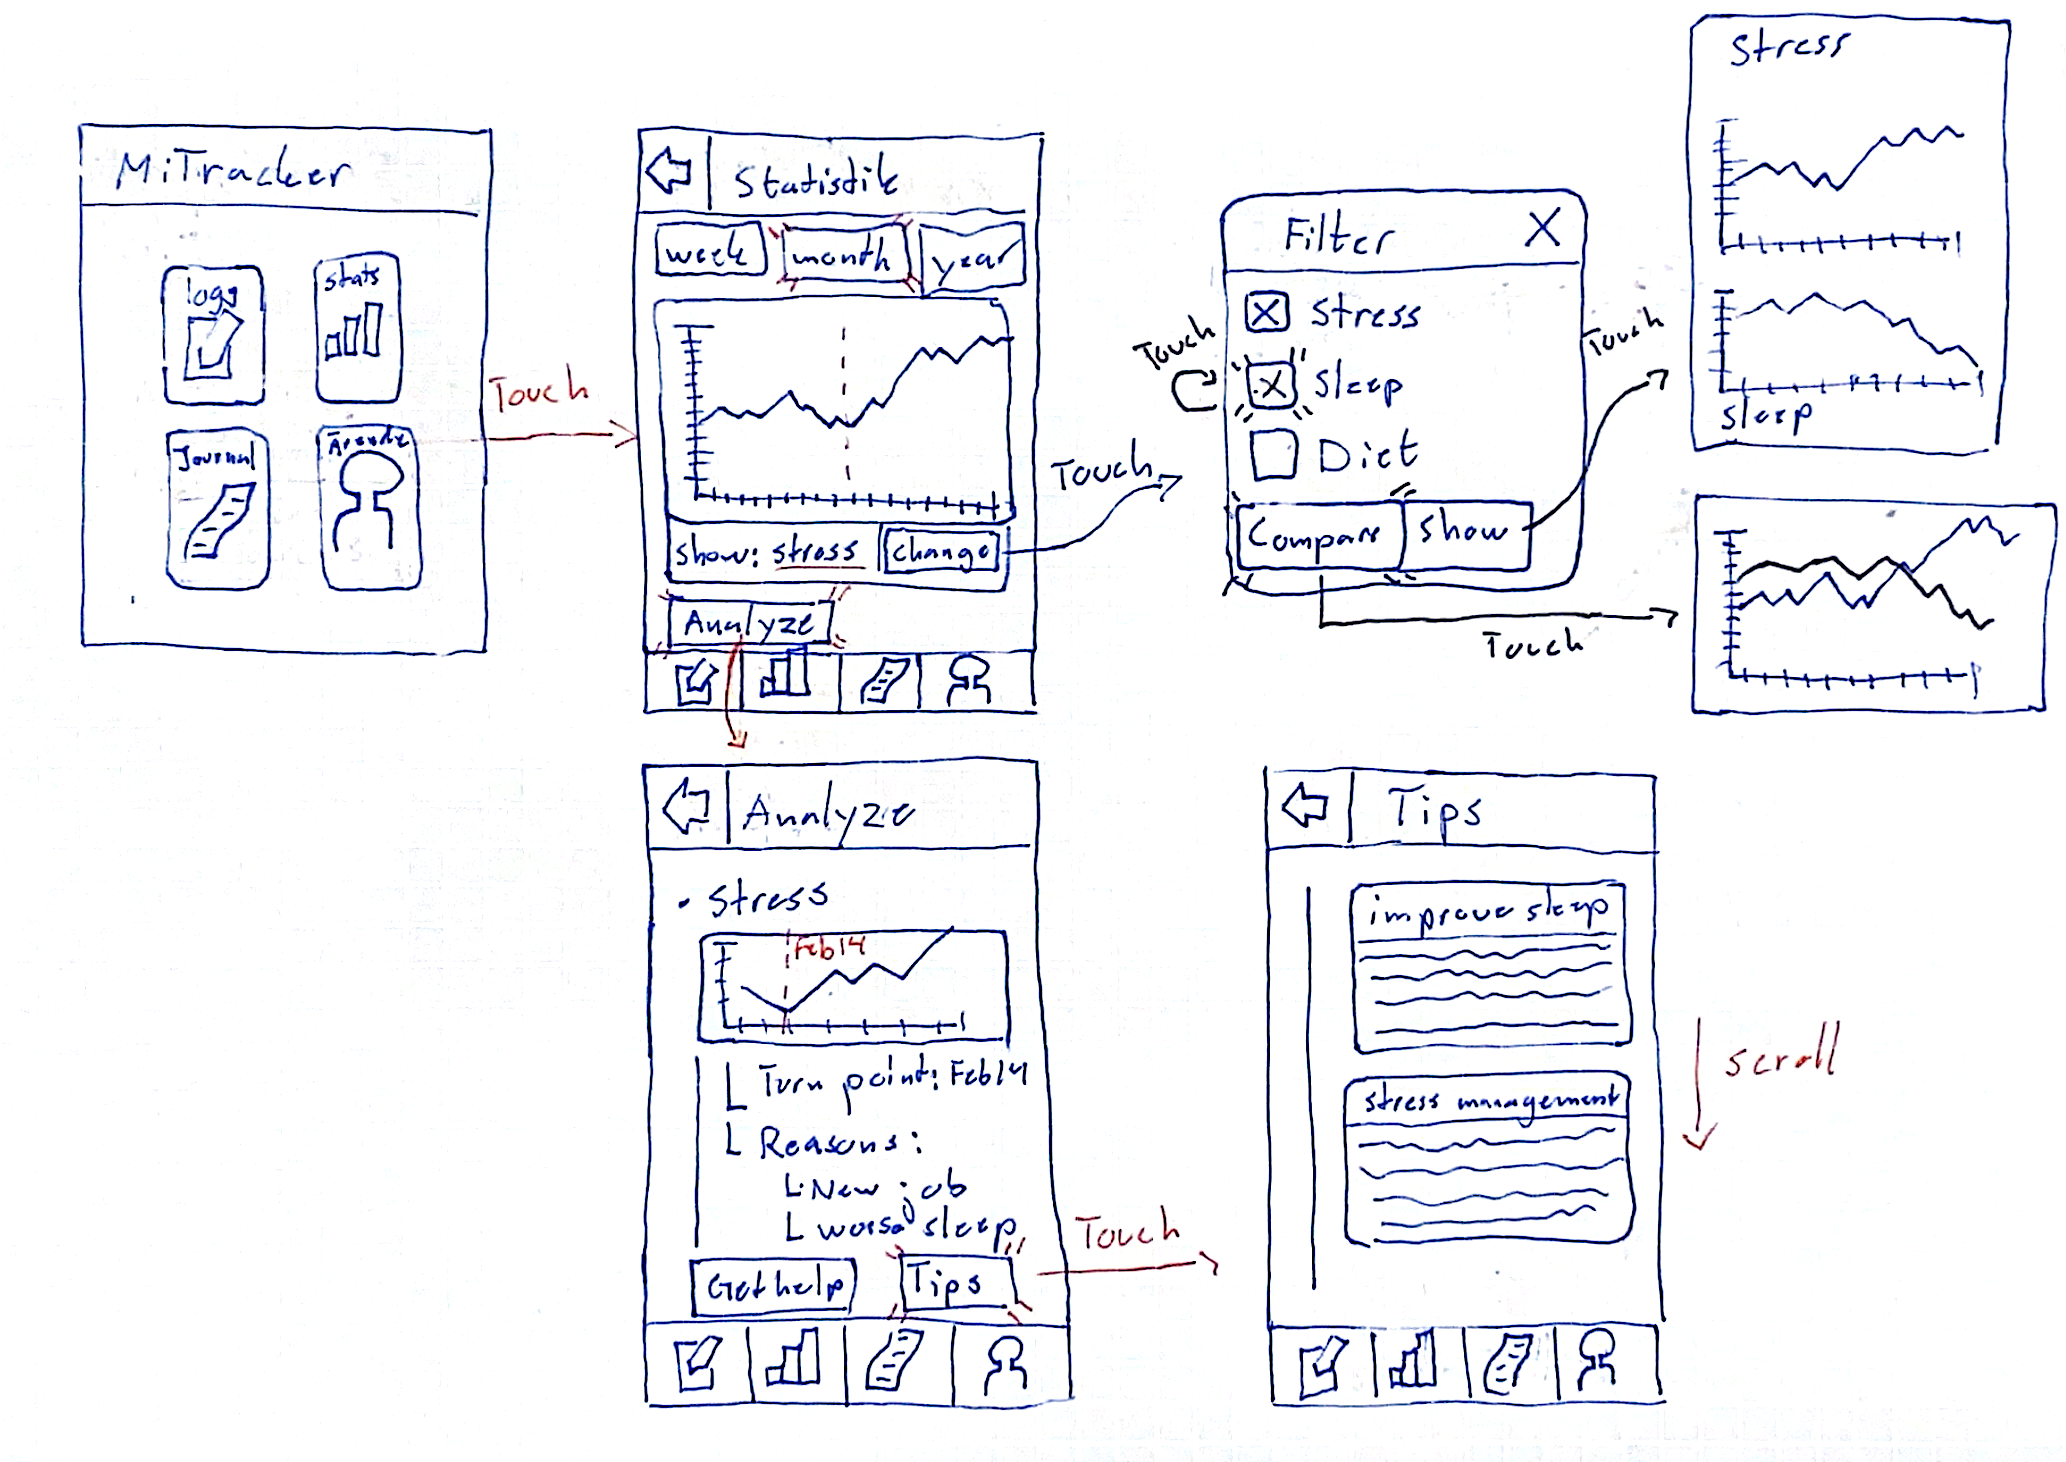 MiTracker
logg
stats
Journal
Touch
Statistik
week
month
year
show: stress
change
Analyze
Touch
Filter
X
Stress
Touch
Sleep
Diet
Compare
Show
Touch
Touch
Stress
sleep
Analyze
• Stress
Feb 14
Turn point: Feb 14
Reasons:
New job
worse sleep
Get help
Tips
Touch
Tips
improve sleep
stress management
scroll